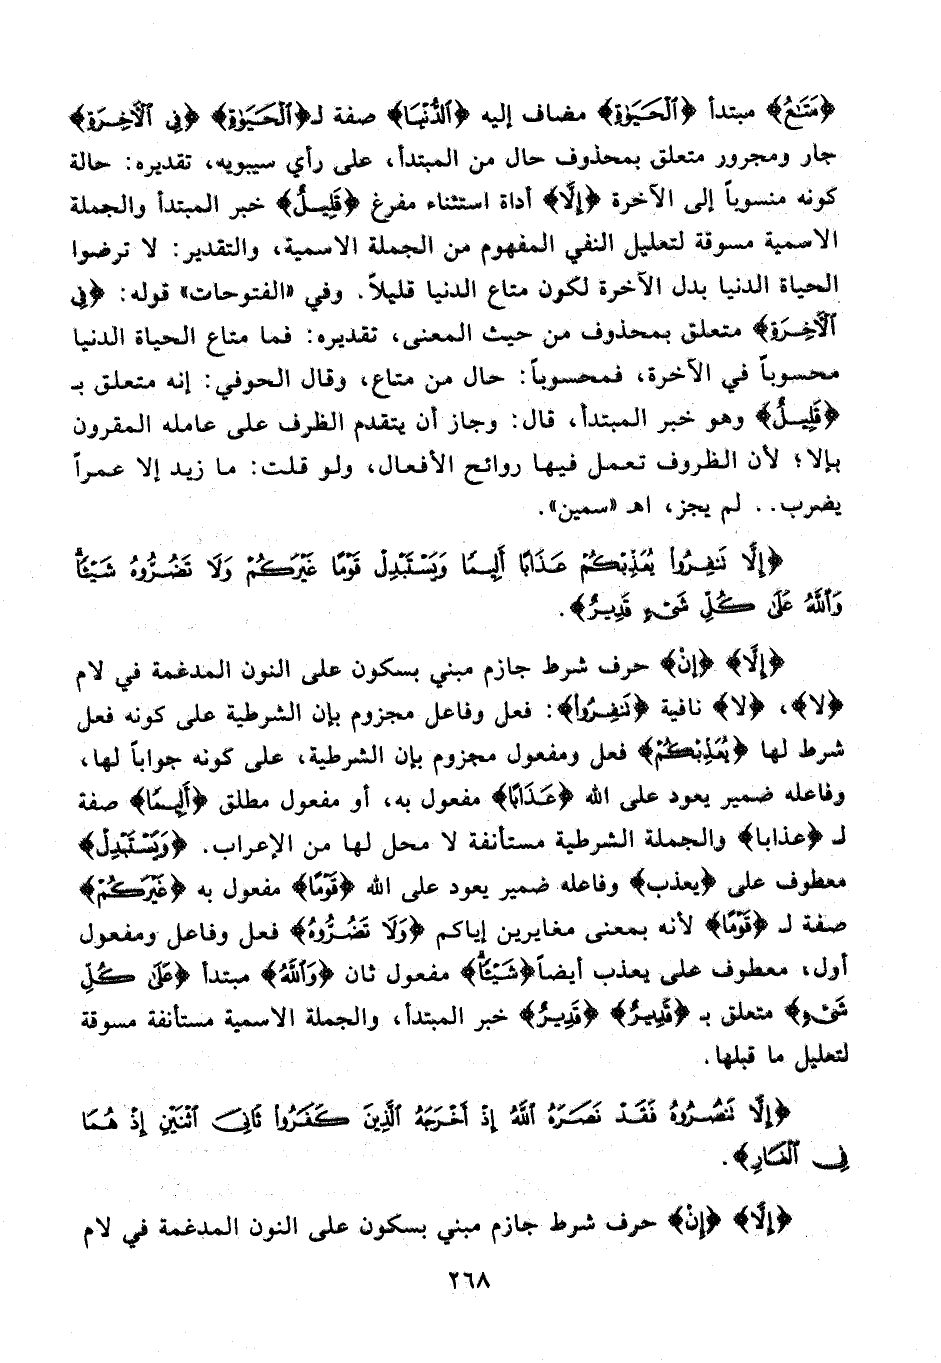 ﴿مَتَاعُ﴾ مبتدأ ﴿ٱلْحَيَوٰةِ﴾ مضاف إليه ﴿ٱلدُّنْيَا﴾ صفة لـ﴿ٱلْحَيَوٰةِ﴾ ﴿فِى ٱلْآخِرَةِ﴾
جار ومجرور متعلق بمحذوف حال من المبتدأ، على رأي سيبويه، تقديره: حالة
كونه منسوباً إلى الآخرة ﴿إِلَّا﴾ أداة استثناء مفرغ ﴿قَلِيلٌ﴾ خبر المبتدأ والجملة
الاسمية مسوقة لتعليل النفي المفهوم من الجملة الاسمية، والتقدير: لا ترضوا
الحياة الدنيا بدل الآخرة لكون متاع الدنيا قليلاً. وفي «الفتوحات» قوله: ﴿فِى
ٱلْآخِرَةِ﴾ متعلق بمحذوف من حيث المعنى، تقديره: فما متاع الحياة الدنيا
محسوباً في الآخرة، فمحسوباً: حال من متاع، وقال الحوفي: إنه متعلق بـ
﴿قَلِيلٌ﴾ وهو خبر المبتدأ، قال: وجاز أن يتقدم الظرف على عامله المقرون
بإلا؛ لأن الظروف تعمل فيها روائح الأفعال، ولو قلت: ما زيد إلا عمراً
يضرب.. لم يجز، اهـ «سمين».
﴿إِلَّا تَنفِرُوا۟ يُعَذِّبْكُمْ عَذَابًا أَلِيمًا وَيَسْتَبْدِلْ قَوْمًا غَيْرَكُمْ وَلَا تَضُرُّوهُ شَيْئًا
وَٱللَّهُ عَلَىٰ كُلِّ شَىْءٍ قَدِيرٌ﴾.
﴿إِلَّا﴾ ﴿إِنْ﴾ حرف شرط جازم مبني بسكون على النون المدغمة في لام
﴿لا﴾، ﴿لا﴾ نافية ﴿تَنفِرُوا۟﴾: فعل وفاعل مجزوم بإن الشرطية على كونه فعل
شرط لها ﴿يُعَذِّبْكُمْ﴾ فعل ومفعول مجزوم بإن الشرطية، على كونه جواباً لها،
وفاعله ضمير يعود على الله ﴿عَذَابًا﴾ مفعول به، أو مفعول مطلق ﴿أَلِيمًا﴾ صفة
لـ ﴿عذابا﴾ والجملة الشرطية مستأنفة لا محل لها من الإعراب. ﴿وَيَسْتَبْدِلْ﴾
معطوف على ﴿يعذب﴾ وفاعله ضمير يعود على الله ﴿قَوْمًا﴾ مفعول به ﴿غَيْرَكُمْ﴾
صفة لـ ﴿قَوْمًا﴾ لأنه بمعنى مغايرين إياكم ﴿وَلَا تَضُرُّوهُ﴾ فعل وفاعل ومفعول
أول، معطوف على يعذب أيضاً ﴿شَيْئًا﴾ مفعول ثان ﴿وَٱللَّهُ﴾ مبتدأ ﴿عَلَىٰ كُلِّ
شَىْءٍ﴾ متعلق بـ ﴿قَدِيرٌ﴾ ﴿قَدِيرٌ﴾ خبر المبتدأ، والجملة الاسمية مستأنفة مسوقة
لتعليل ما قبلها.
﴿إِلَّا تَنصُرُوهُ فَقَدْ نَصَرَهُ ٱللَّهُ إِذْ أَخْرَجَهُ ٱلَّذِينَ كَفَرُوا۟ ثَانِىَ ٱثْنَيْنِ إِذْ هُمَا
فِى ٱلْغَارِ﴾.
﴿إِلَّا﴾ ﴿إِنْ﴾ حرف شرط جازم مبني بسكون على النون المدغمة في لام
٢٦٨